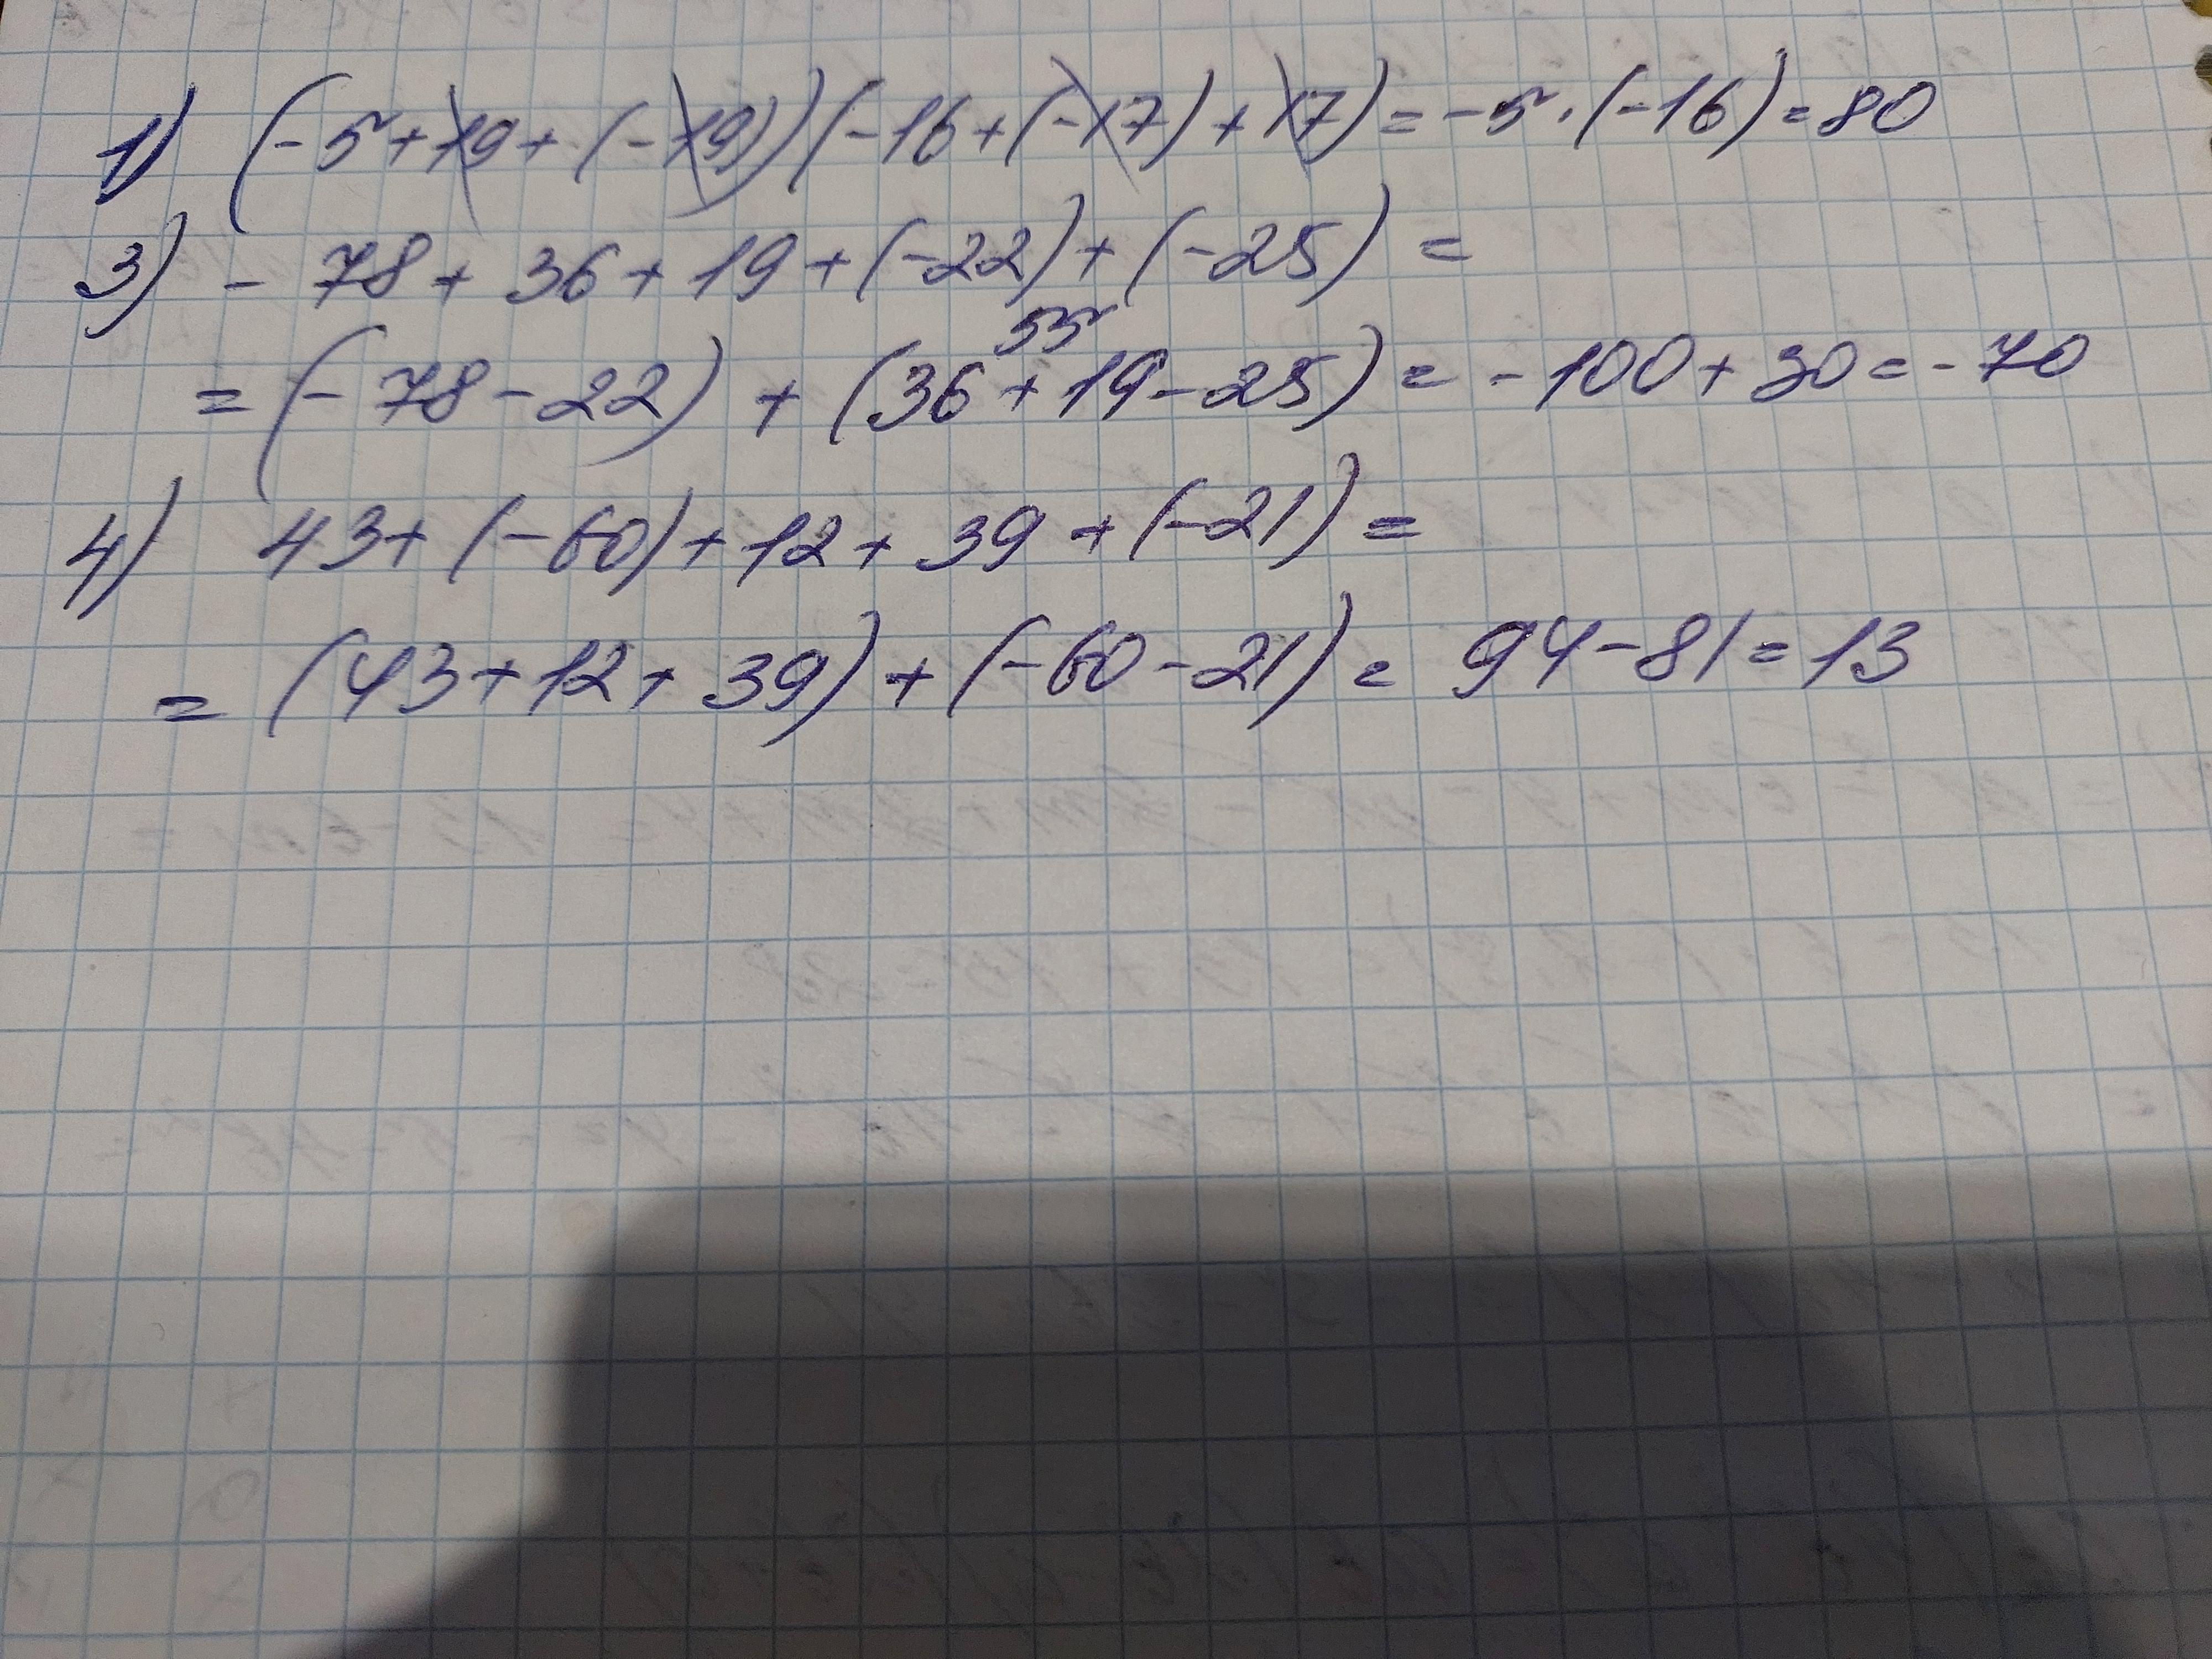 1) (-5+19+(-19))(-16+(-17)+17)=-5·(-16)=80
3) -78+36+19+(-22)+(-25)=
55
=(-78-22)+(36+19-25)=-100+30=-70
4) 43+(-60)+12+39+(-21)=
=(43+12+39)+(-60-21)=94-81=13